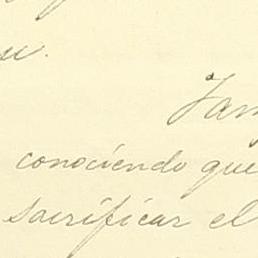 conociendo que
sacrificar el